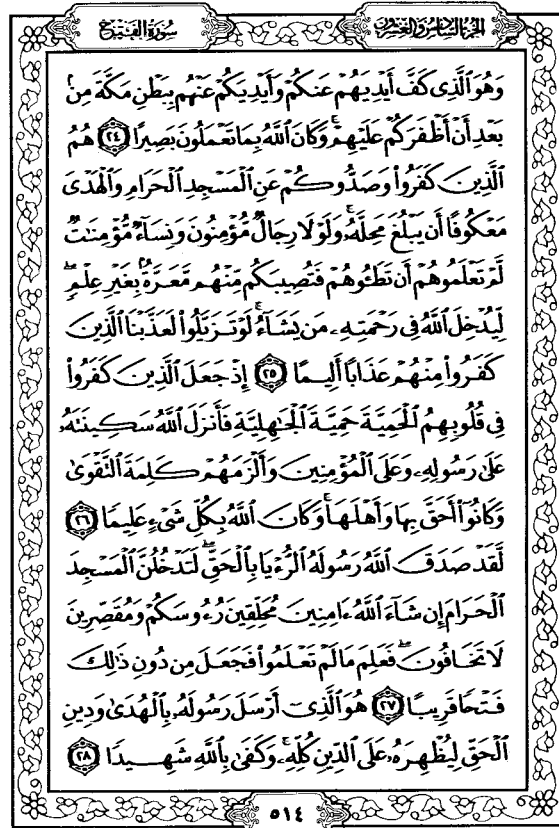 سُورَةُ الفَتْحِ
الجُزْءُ السَّادِسُ وَالعِشْرُونَ
وَهُوَ ٱلَّذِى كَفَّ أَيْدِيَهُمْ عَنكُمْ وَأَيْدِيَكُمْ عَنْهُم بِبَطْنِ مَكَّةَ مِنۢ
بَعْدِ أَنْ أَظْفَرَكُمْ عَلَيْهِمْ ۚ وَكَانَ ٱللَّهُ بِمَا تَعْمَلُونَ بَصِيرًا ۝٢٤ هُمُ
ٱلَّذِينَ كَفَرُوا۟ وَصَدُّوكُمْ عَنِ ٱلْمَسْجِدِ ٱلْحَرَامِ وَٱلْهَدْىَ
مَعْكُوفًا أَن يَبْلُغَ مَحِلَّهُۥ ۚ وَلَوْلَا رِجَالٌ مُّؤْمِنُونَ وَنِسَآءٌ مُّؤْمِنَـٰتٌ
لَّمْ تَعْلَمُوهُمْ أَن تَطَـُٔوهُمْ فَتُصِيبَكُم مِّنْهُم مَّعَرَّةٌۢ بِغَيْرِ عِلْمٍ ۖ
لِّيُدْخِلَ ٱللَّهُ فِى رَحْمَتِهِۦ مَن يَشَآءُ ۚ لَوْ تَزَيَّلُوا۟ لَعَذَّبْنَا ٱلَّذِينَ
كَفَرُوا۟ مِنْهُمْ عَذَابًا أَلِيمًا ۝٢٥ إِذْ جَعَلَ ٱلَّذِينَ كَفَرُوا۟
فِى قُلُوبِهِمُ ٱلْحَمِيَّةَ حَمِيَّةَ ٱلْجَـٰهِلِيَّةِ فَأَنزَلَ ٱللَّهُ سَكِينَتَهُۥ
عَلَىٰ رَسُولِهِۦ وَعَلَى ٱلْمُؤْمِنِينَ وَأَلْزَمَهُمْ كَلِمَةَ ٱلتَّقْوَىٰ
وَكَانُوٓا۟ أَحَقَّ بِهَا وَأَهْلَهَا ۚ وَكَانَ ٱللَّهُ بِكُلِّ شَىْءٍ عَلِيمًا ۝٢٦
لَّقَدْ صَدَقَ ٱللَّهُ رَسُولَهُ ٱلرُّءْيَا بِٱلْحَقِّ ۖ لَتَدْخُلُنَّ ٱلْمَسْجِدَ
ٱلْحَرَامَ إِن شَآءَ ٱللَّهُ ءَامِنِينَ مُحَلِّقِينَ رُءُوسَكُمْ وَمُقَصِّرِينَ
لَا تَخَافُونَ ۖ فَعَلِمَ مَا لَمْ تَعْلَمُوا۟ فَجَعَلَ مِن دُونِ ذَٰلِكَ
فَتْحًا قَرِيبًا ۝٢٧ هُوَ ٱلَّذِىٓ أَرْسَلَ رَسُولَهُۥ بِٱلْهُدَىٰ وَدِينِ
ٱلْحَقِّ لِيُظْهِرَهُۥ عَلَى ٱلدِّينِ كُلِّهِۦ ۚ وَكَفَىٰ بِٱللَّهِ شَهِيدًا ۝٢٨
٥١٤